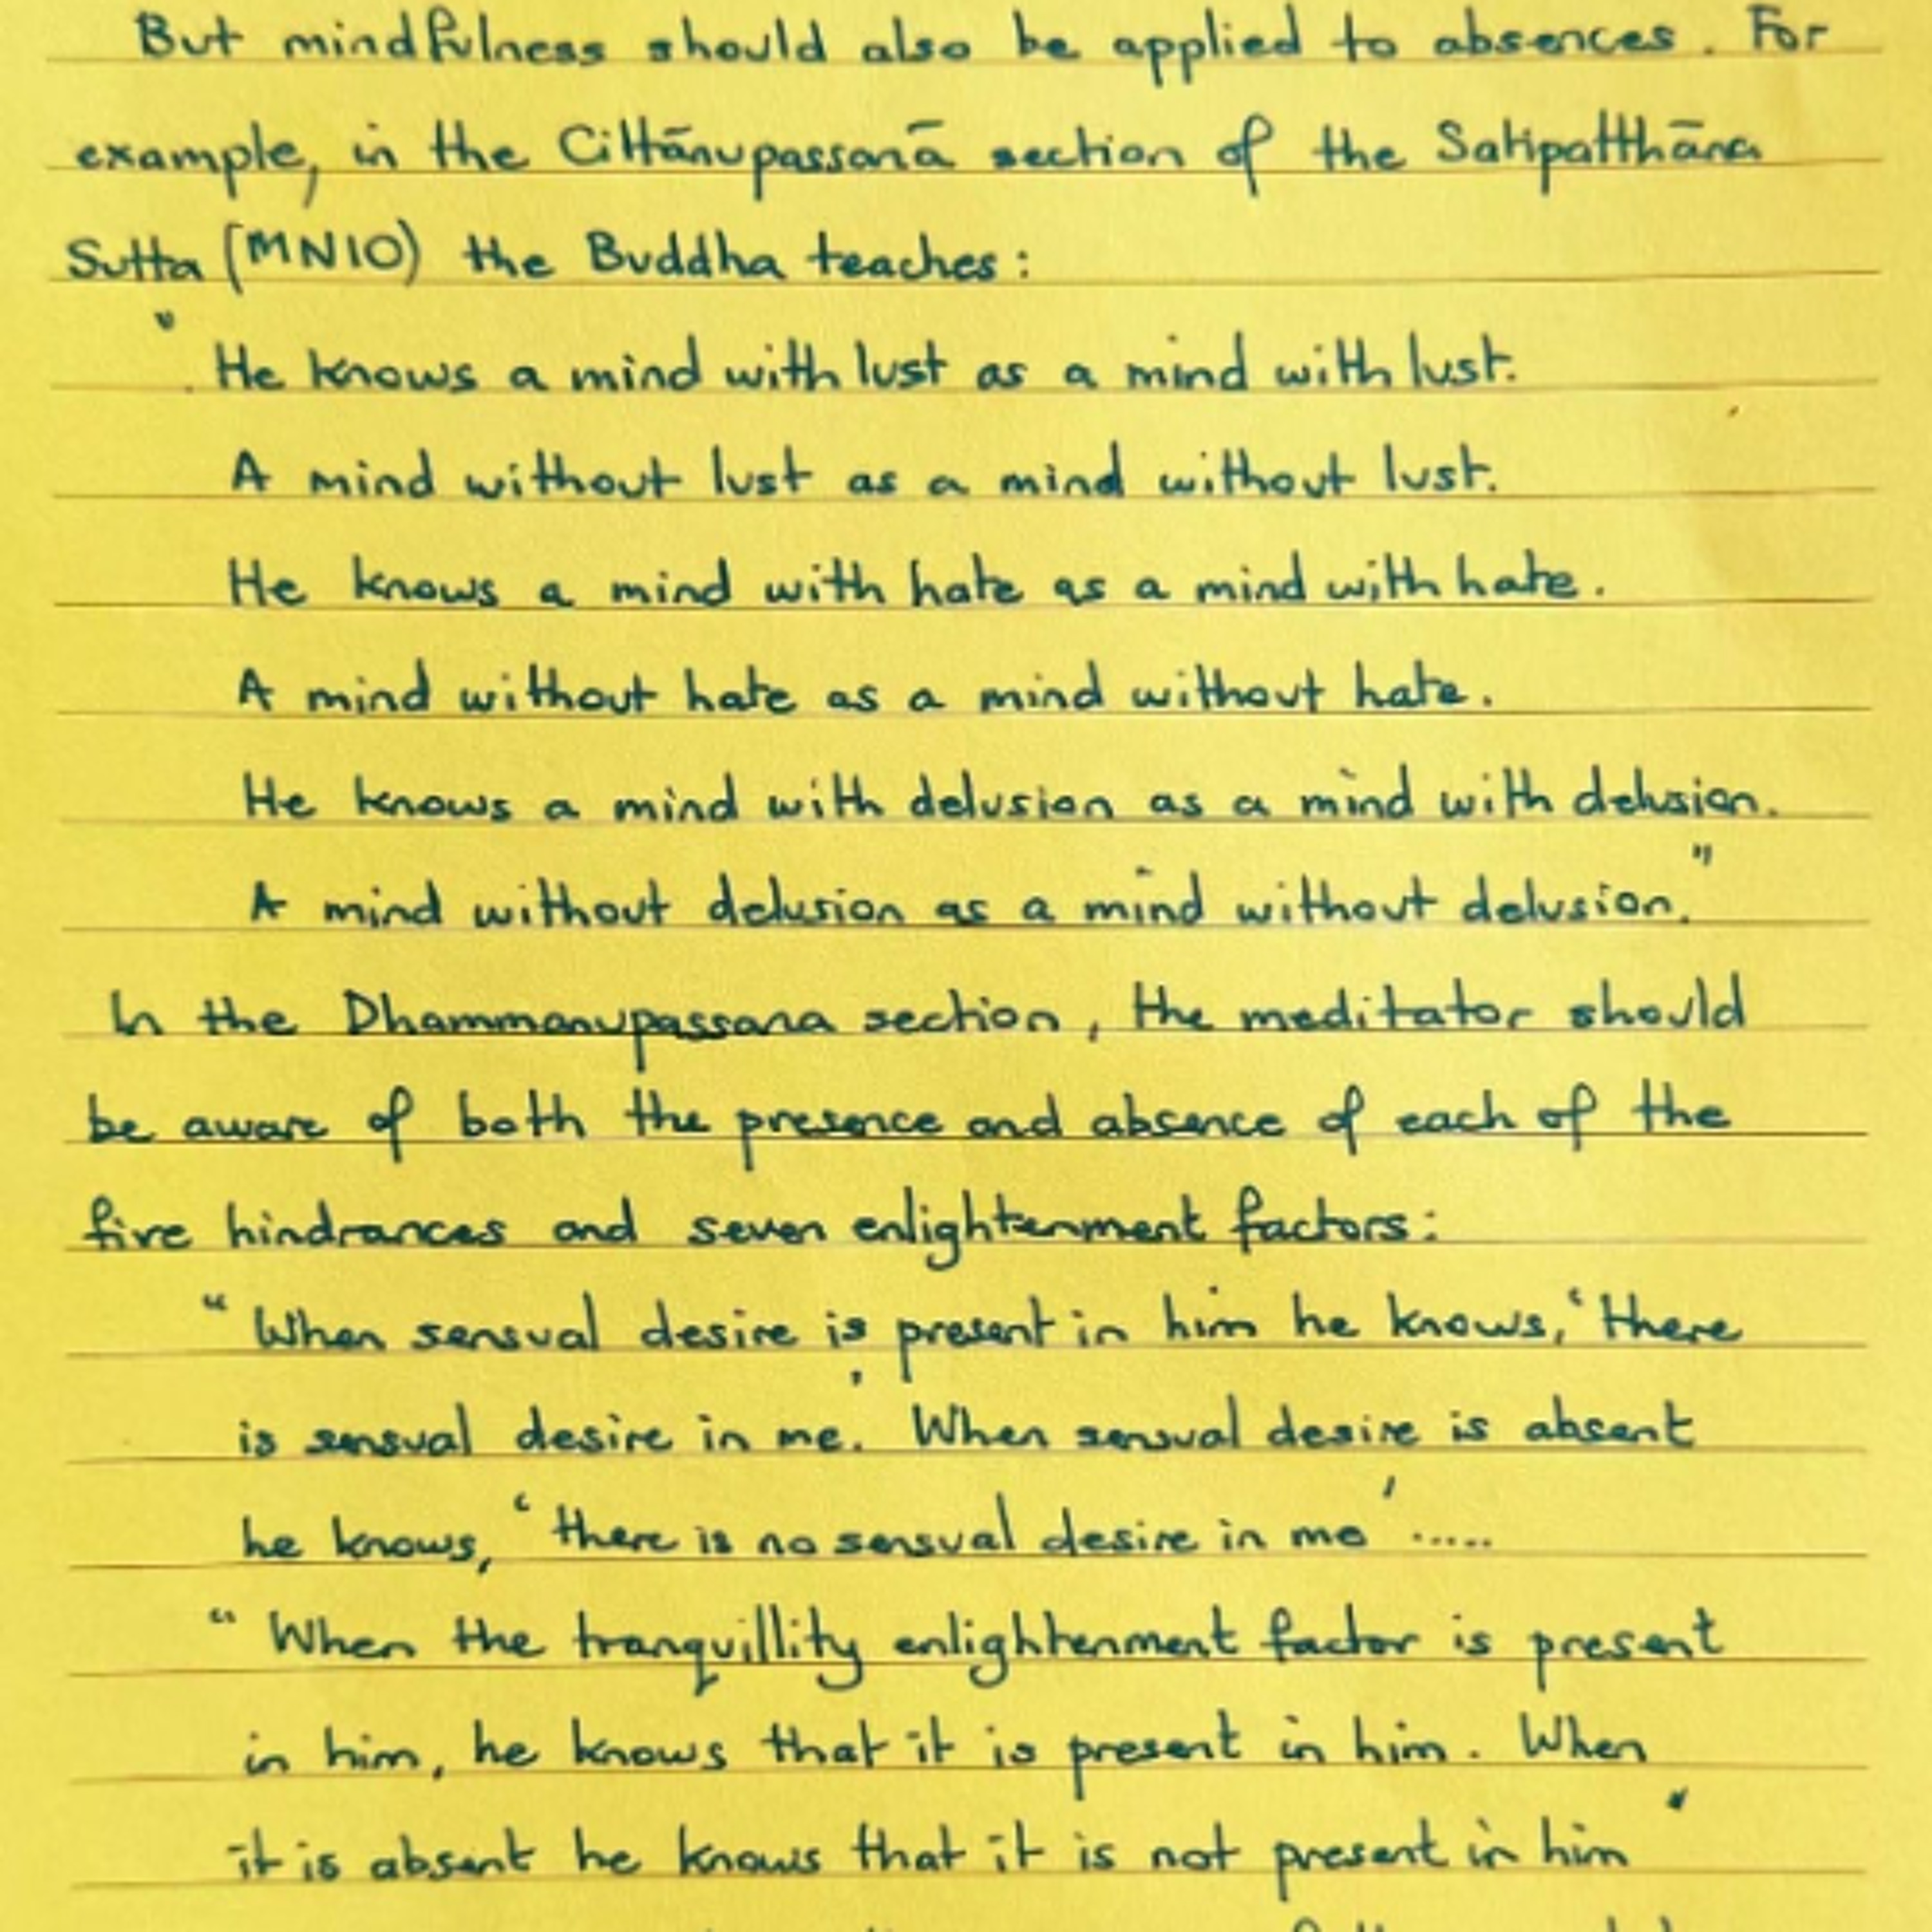 But mindfulness should also be applied to absences. For
example, in the Cittānupassanā section of the Satipatthāna
Sutta (MN10) the Buddha teaches:
"He knows a mind with lust as a mind with lust.
A mind without lust as a mind without lust.
He knows a mind with hate as a mind with hate.
A mind without hate as a mind without hate.
He knows a mind with delusion as a mind with delusion.
A mind without delusion as a mind without delusion."
In the Dhammanupassana section, the meditator should
be aware of both the presence and absence of each of the
five hindrances and seven enlightenment factors:
"When sensual desire is present in him he knows, 'there
is sensual desire in me.' When sensual desire is absent
he knows, 'there is no sensual desire in me' .....
"When the tranquillity enlightenment factor is present
in him, he knows that it is present in him. When
it is absent he knows that it is not present in him"